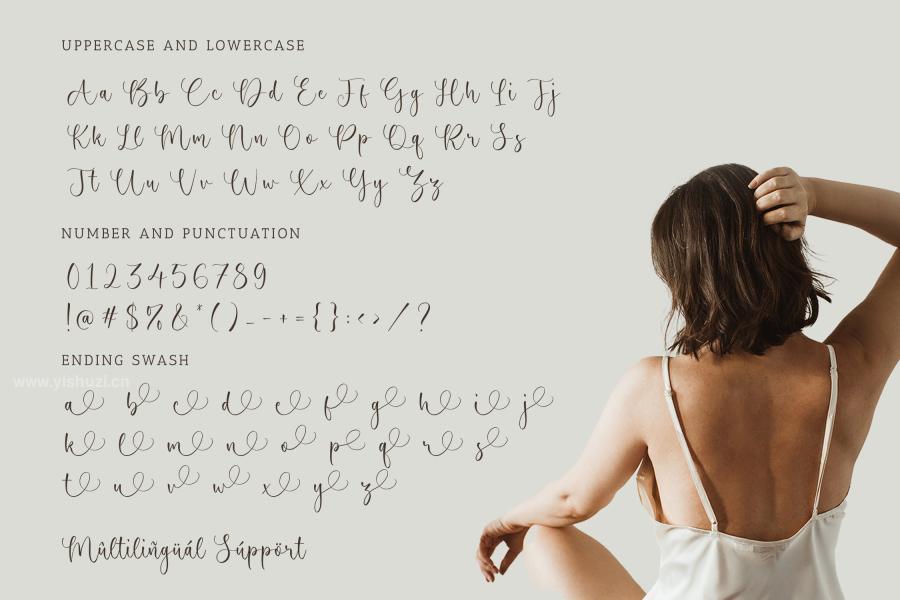 UPPERCASE AND LOWERCASE
Aa Bb Cc Dd Ee Ff Gg Hh Ii Jj
Kk Ll Mm Nn Oo Pp Qq Rr Ss
Tt Uu Vv Ww Xx Yy Zz
NUMBER AND PUNCTUATION
0123456789
!@#$%&*()_-+={}:<>/?
ENDING SWASH
www.yishuzi.cn
a b c d e f g h i j
k l m n o p q r s
t u v w x y z
Mûltilïñgüál Súppört